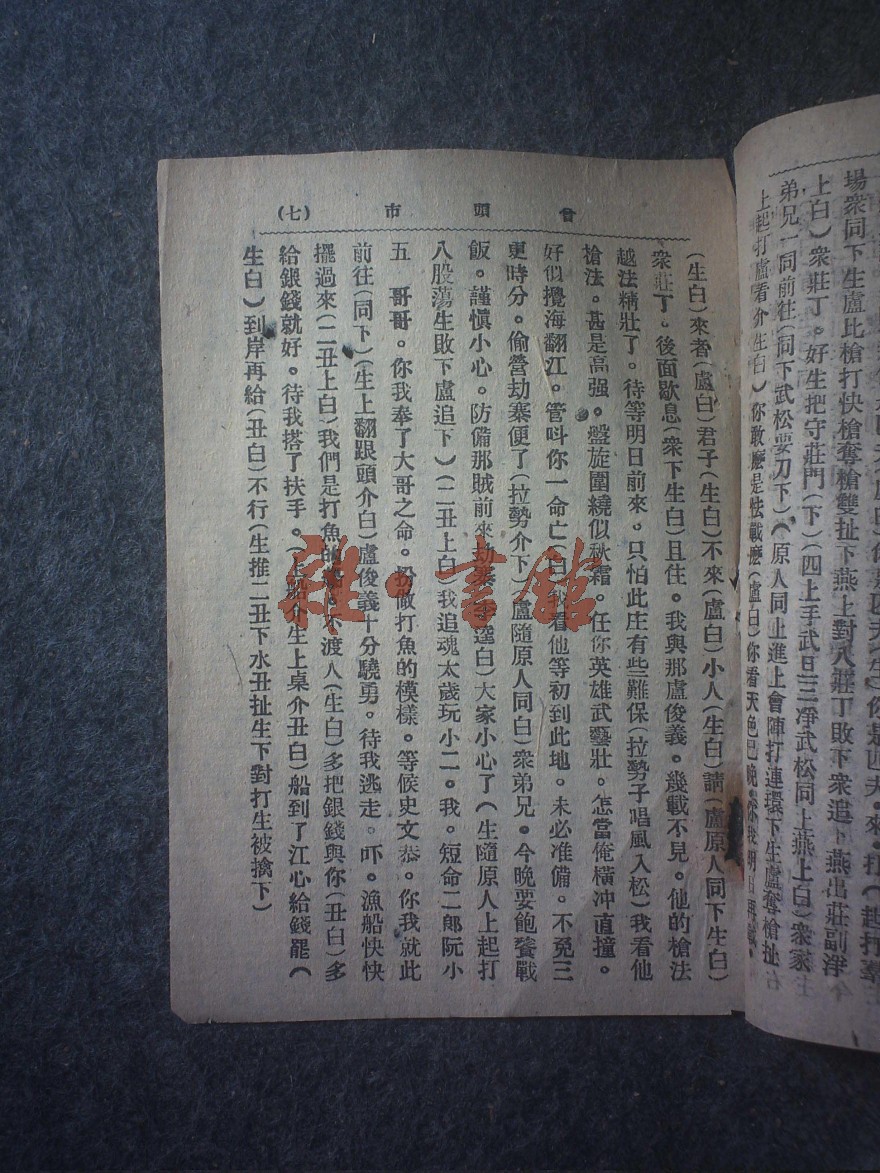 場衆同下生盧比槍打快槍奪槍雙扯下燕上對八莊丁敗下衆追下燕出莊副淨
上白)衆莊丁。好生把守莊門(下)(四上手武旦三凈武松同上燕上白)衆家
弟兄一同前往(同下武松耍刀下)(原人同上進上會陣打連環下生盧奪槍扯
上起打盧看介生白)你敢麽是怯戰麽(盧白)你看天色已晚你我明日再戰。
曾頭市 (七)
(生白)來者(盧白)君子(生白)不來(盧白)小人(生白)請(盧原人同下生白)
衆莊丁。後面歇息(衆下生白)且住。我與那盧俊義。幾載不見。他的槍法
越法精壯了。待等明日前來。只怕此庄有些難保(拉勢子唱風入松)我看他
槍法。甚是高强。盤旋圍繞似秋霜。任你英雄武藝壯。怎當俺橫冲直撞。
好似攪海翻江。管叫你一命亡(白)我看他等初到此地。未必准備。不免三
更時分。偷營劫寨便了(拉勢介下)(盧隨原人同白)衆弟兄。今晚要飽餐戰
飯。謹愼小心。防備那賊前來劫寨(李逵白)大家小心了(生隨原人上起打
八股蕩生敗下盧追下)(二丑上白)我追魂太歲玩小二。我。短命二郎阮小
五 哥哥。你我奉了大哥之命。扮做打魚的模樣。等候史文恭。你我就此
前往(同下)(生上翻跟頭介白)盧俊義十分驍勇。待我逃走。吓。漁船快快
擺過來(二丑上白)我們是打魚的船。不渡人(生白)多把銀錢與你(丑白)多
給銀錢就好。待我搭了扶手。(上船介生上桌介丑白)船到了江心給錢罷(
生白)到岸再給(丑白)不行(生推二丑下水丑扯生下對打生被擒下)
雜·書館